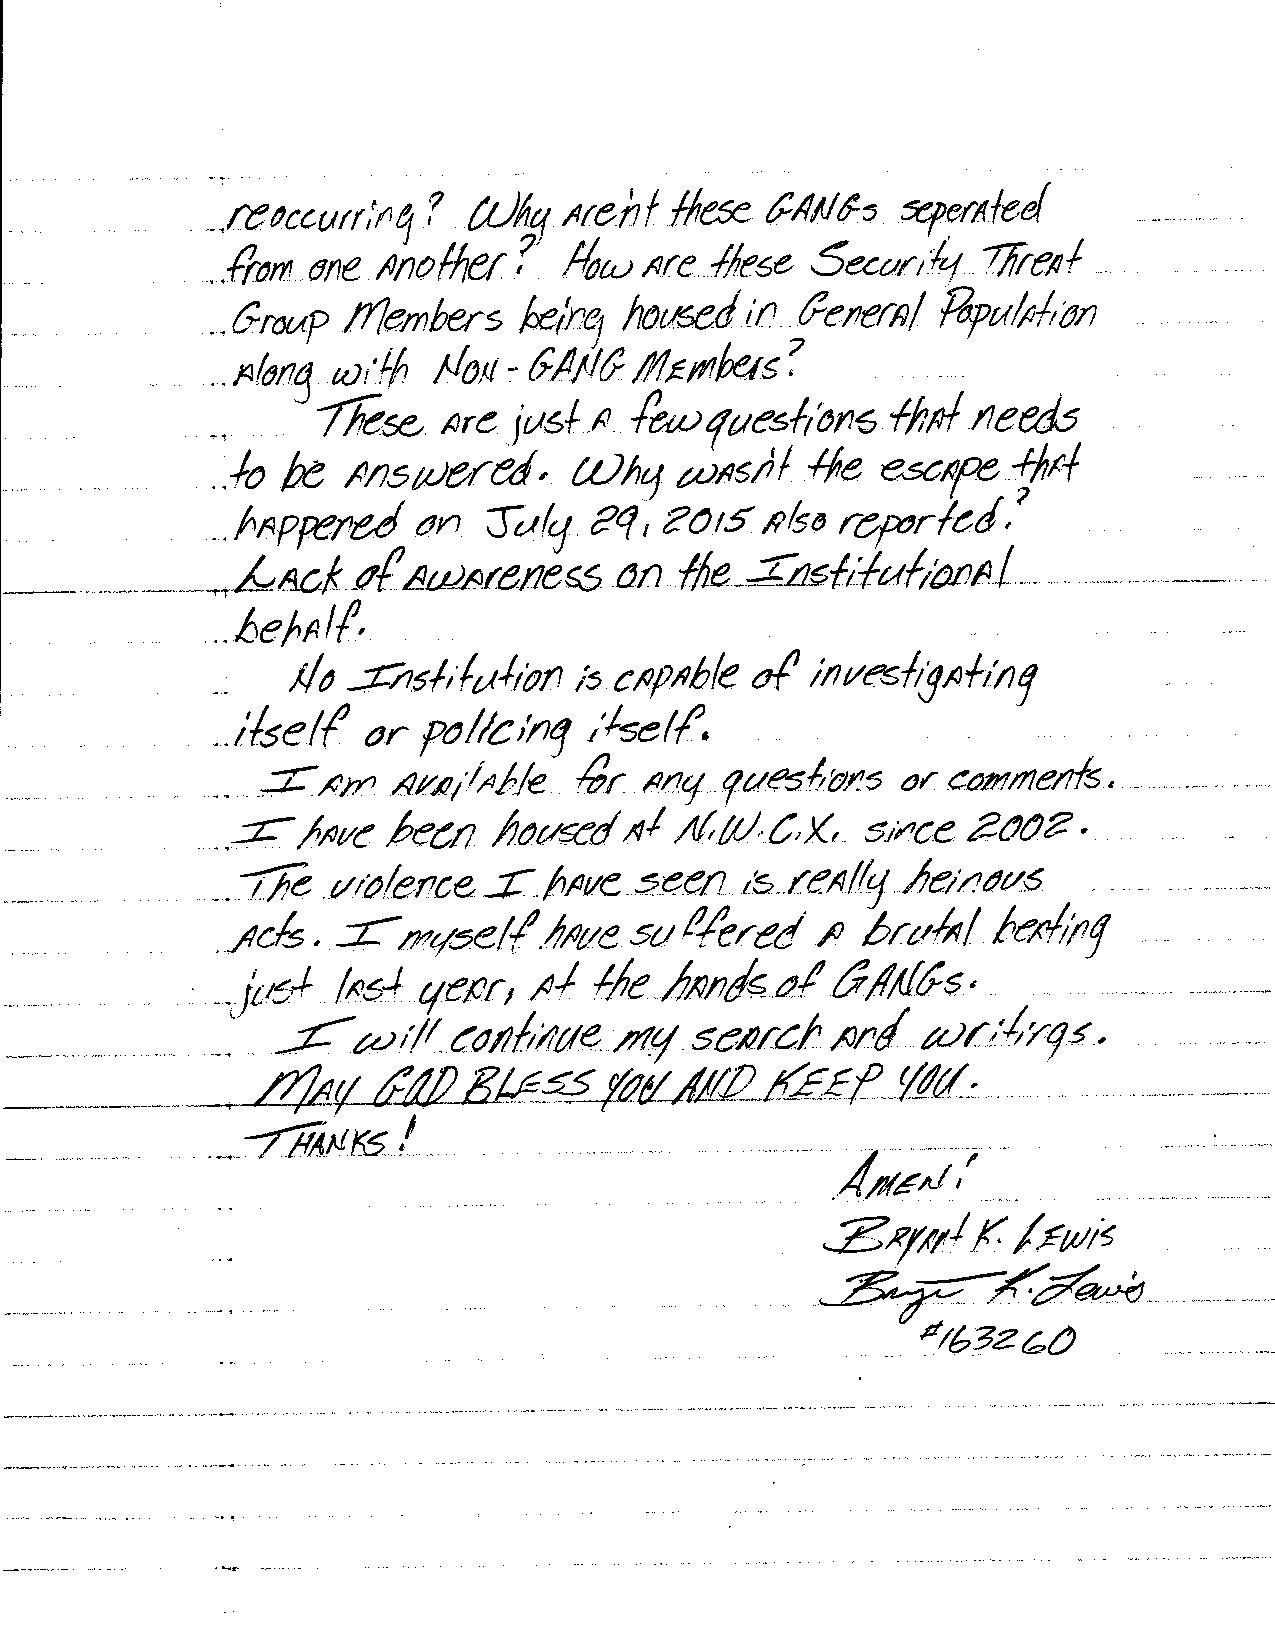 reoccurring? Why Aren't these GANGs seperated
from one Another? How Are these Security Threat
Group Members being housed in General Population
Along with Non-GANG Members?
These Are just A few questions that needs
to be Answered. Why wasn't the escape that
happened on July 29, 2015 Also reported?
Lack of Awareness on the Institutional
behalf.
No Institution is capable of investigating
itself or policing itself.
I Am Available for Any questions or comments.
I have been housed At N.W.C.X. since 2002.
The violence I have seen is really heinous
Acts. I myself have suffered A brutal beating
just last year, At the hands of GANGs.
I will continue my search And writings.
MAY GOD BLESS YOU AND KEEP YOU.
THANKS!
AMEN!
Bryant K. Lewis
Bryant K. Lewis
#163260